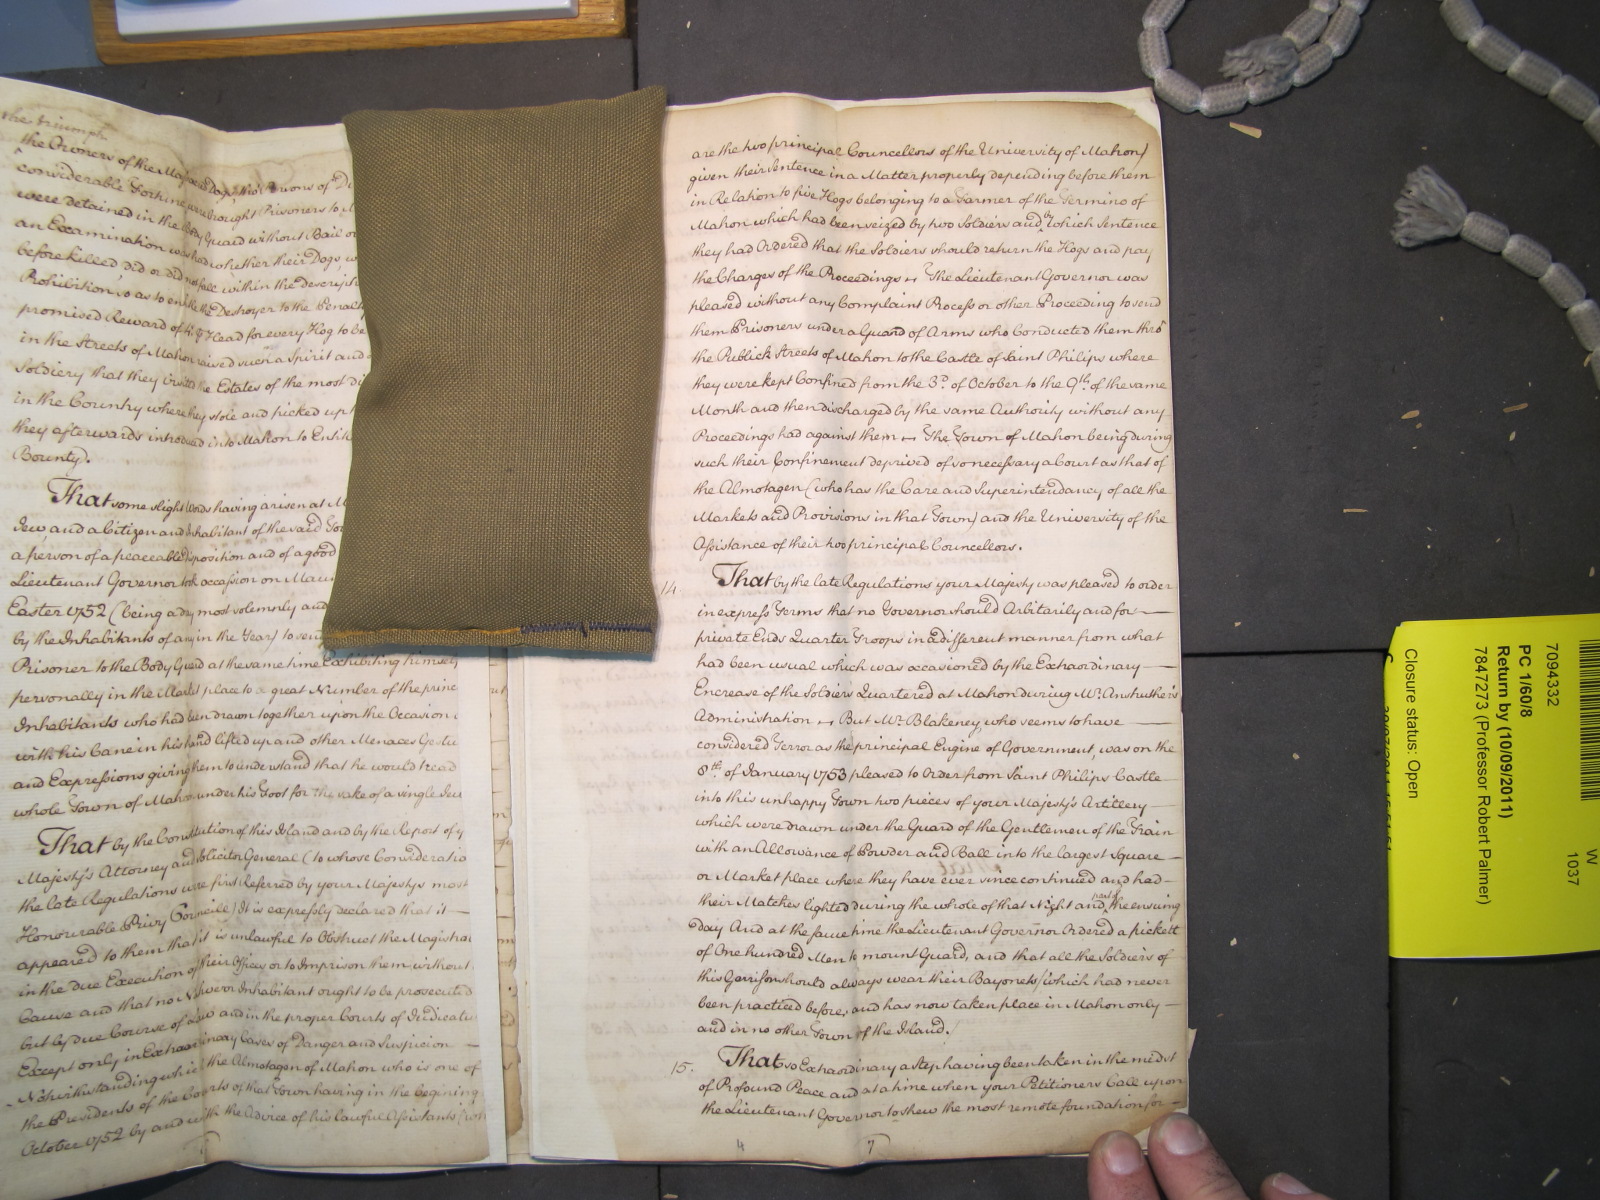 the triumph
the Owners of the Dogs, the Persons of
considerable Fortune were brought Prisoners to
were detained in the Body Guard without Bail or
an Examination was had whether their Dogs
before killed, did or did not fall within the
Prohibition so as to entitle the Destroyer to the
promised Reward of Head for every Hog to be
in the Streets of Mahon raised such a Spirit and
Soldiery that they visited the Estates of the most
in the Country where they stole and picked up
they afterwards introduced into Mahon to
Bounty.
That some slight Words having arisen at
Jew, and a Citizen and Inhabitant of the said
a person of a peaceable Disposition and of a good
Lieutenant Governor took occasion on
Easter 1752 (being a day most solemnly and
by the Inhabitants of any in the Year) to send
Prisoner to the Body Guard at the same time Exhibiting himself
personally in the Market place to a great Number of the princ
Inhabitants who had been drawn together upon the Occasion
with his Cane in his hand lifted up and other Menaces Gestu
and Expressions giving them to understand that he would tread
whole Town of Mahon under his Foot for the sake of a single Jew
That by the Constitution of this Island and by the Report of y
Majesty's Attorney and Solicitor General (to whose Consideratio
the late Regulations were first Referred by your Majesty's most
Honourable Privy Councile) It is expressly declared that it
appeared to them that it is unlawful to Obstruct the Magistra
in the due Execution of their Offices or to Imprison them without
Cause and that no Inhabitant ought to be prosecuted
but by due Course of Law and in the proper Courts of Judicatu
Except only in Extraordinary Cases of Danger and Suspicion
Notwithstanding which the Almotagen of Mahon who is one of
the Presidents of the Courts of that Town having in the begining
October 1752 by and with the Advice of his lawful Assistants
are the two principal Councellors of the University of Mahon)
given their Sentence in a Matter properly depending before them
in Relation to five Hogs belonging to a Farmer of the Termino of
Mahon which had been seized by two Soldiers and by which Sentence
they had Ordered that the Soldiers should return the Hogs and pay
the Charges of the Proceedings The Lieutenant Governor was
pleased without any Complaint Process or other Proceeding to send
them Prisoners under a Guard of Arms who Conducted them thro'
the Publick Streets of Mahon to the Castle of Saint Philips where
they were kept Confined from the 3d. of October to the 9th. of the same
Month and then discharged by the same Authority without any
Proceedings had against them The Town of Mahon being during
such their Confinement deprived of so necessary a Court as that of
the Almotagen (who has the Care and Superintendancy of all the
Markets and Provisions in that Town) and the University of the
Assistance of their two principal Councellors.
14 That by the late Regulations your Majesty was pleased to order
in express Terms that no Governor should Arbitarily and for
private Ends Quarter Troops in a different manner from what
had been usual which was occasioned by the Extraordinary
Encrease of the Soldiers Quartered at Mahon during Mr. Anstruther's
Administration But Mr. Blakeney, who seems to have
considered Terror as the principal Engine of Government, was on the
8th. of January 1753 pleased to Order from Saint Philips Castle
into this unhappy Town two pieces of your Majesty's Artillery
which were drawn under the Guard of the Gentlemen of the Train
with an Allowance of Powder and Ball into the largest Square
or Market place where they have ever since continued and had
their Matches lighted during the whole of that Night and part of the ensuing
day And at the same time the Lieutenant Governor Ordered a pickett
of One hundred Men to mount Guard, and that all the Soldiers of
this Garrison should always wear their Bayonets (which had never
been practiced before, and has now taken place in Mahon only
and in no other Town of the Island.)
15. That so Extraordinary a step having been taken in the midst
of Profound Peace and at a time when your Petitioners Call upon
the Lieutenant Governor to shew the most remote foundation for
4 7
W
1037
7094332
PC 1/60/8
Return by (10/09/2011)
7847273 (Professor Robert Palmer)
Closure status: Open